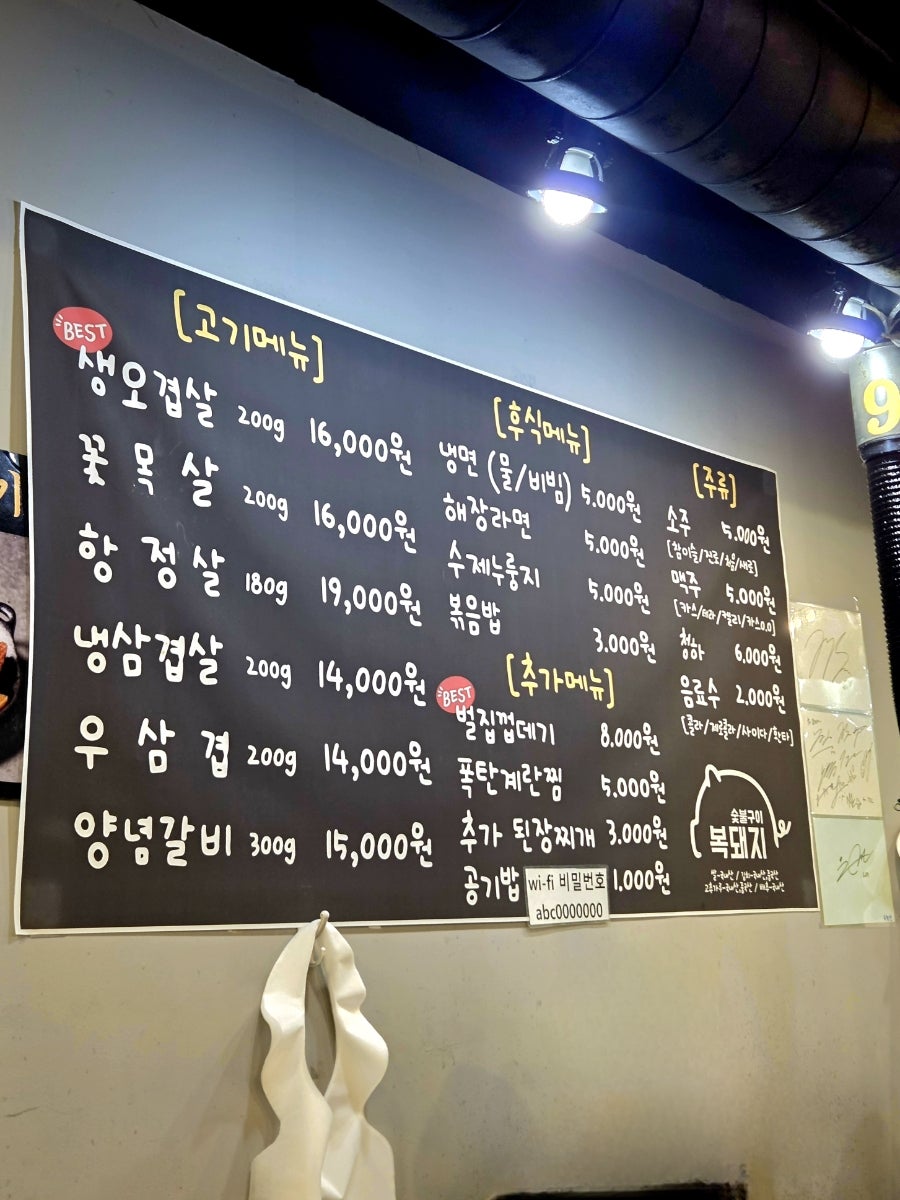 BEST
[고기메뉴]
생오겹살 200g 16,000원
꽃목살 200g 16,000원
항정살 180g 19,000원
냉삼겹살 200g 14,000원
우삼겹 200g 14,000원
양념갈비 300g 15,000원
[후식메뉴]
냉면 (물/비빔) 5.000원
해장라면 5.000원
수제누룽지 5.000원
볶음밥 3.000원
BEST
[추가메뉴]
벌집껍데기 8.000원
폭탄계란찜 5.000원
추가 된장찌개 3.000원
공기밥 1.000원
wi-fi 비밀번호
abc0000000
[주류]
소주 5.000원
[참이슬/진로/처음/새로]
맥주 5.000원
[카스/테라/켈리/카스0.0]
청하 6.000원
음료수 2.000원
[콜라/제로콜라/사이다/환타]
숯불구이
복돼지
쌀-국내산 / 김치-국내산,중국산
고춧가루-국내산,중국산 / 배추-국내산
9